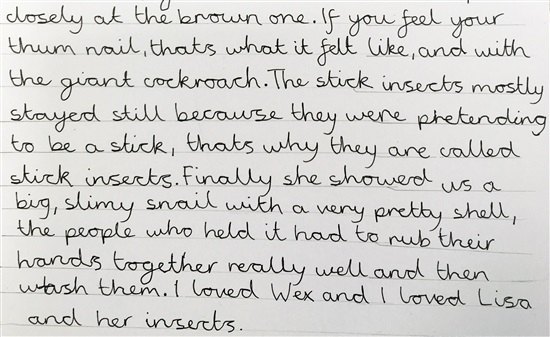 closely at the brown one. If you feel your
thum nail, thats what it felt like, and with
the giant cockroach. The stick insects mostly
stayed still because they were pretending
to be a stick, thats why they are called
stick insects. Finally she showed us a
big, slimy snail with a very pretty shell,
the people who held it had to rub their
hands together really well and then
wash them. I loved Wex and I loved Lisa
and her insects.